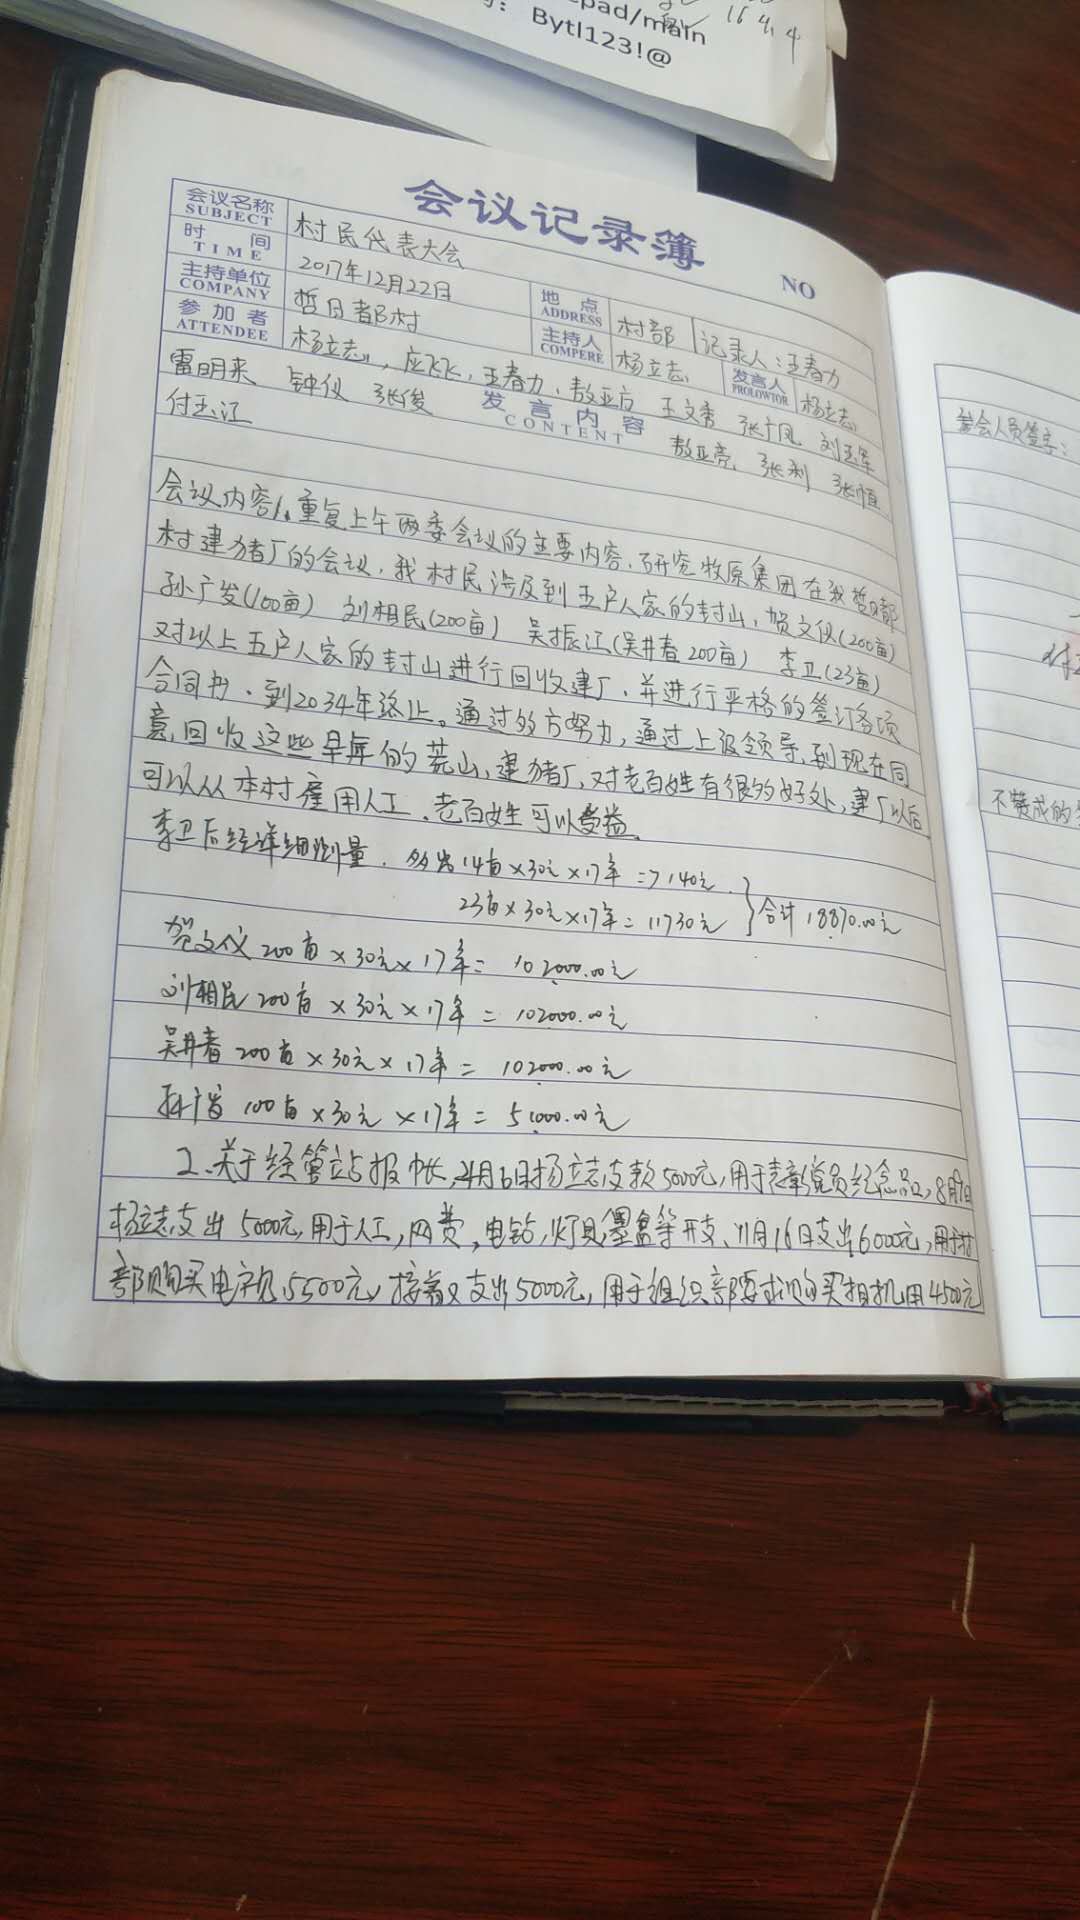 pad/main
Bytl123!@
16 4.4
会议记录簿
NO
会议名称 SUBJECT 村民代表大会
时间 TIME 2017年12月22日 地点 ADDRESS 村部 记录人:王春力
主持单位 COMPANY 哲日都村 主持人 COMPERE 杨立志 发言人 PROLOWTOR 杨立志
参加者 ATTENDEE 杨立志,应飞飞,王春力,敖亚方 王文秀 张广凤 刘玉军
雷明来 钟仪 张俊 发言内容 CONTENT 敖亚亮 张利 张恒
付玉江
会议内容1.重复上午两委会议的主要内容,研究牧原集团在我哲日都
村建猪厂的会议,我村民涉及到五户人家的封山,贺文仪(200亩)
孙广发(100亩) 刘相民(200亩) 吴振江(吴井春200亩) 李卫(23亩)
对以上五户人家的封山进行回收建厂,并进行严格的签订各项
合同书,到2034年终止。通过多方努力,通过上级领导,到现在同
意回收这些早年的荒山,建猪厂,对老百姓有很多好处,建厂以后
可以从本村雇用人工,老百姓可以受益。
李卫后经详细测量,多出14亩×30元×17年=7140元
23亩×30元×17年=11730元 }合计18870.00元
贺文仪200亩×30元×17年=102000.00元
刘相民200亩×30元×17年=102000.00元
吴井春200亩×30元×17年=102000.00元
孙广发100亩×30元×17年=51000.00元
2.关于经管站报帐,4月6日杨立志支款5000元,用于表彰党员纪念品,8月
杨立志支出5000元,用于人工,网费,电钻,灯具,墨盒等开支,11月16日支出6000元,用于村
部购买电脑5500元,接着又支出5000元,用于组织部要求购买相机用4500元
参会人员签字:
不赞成的